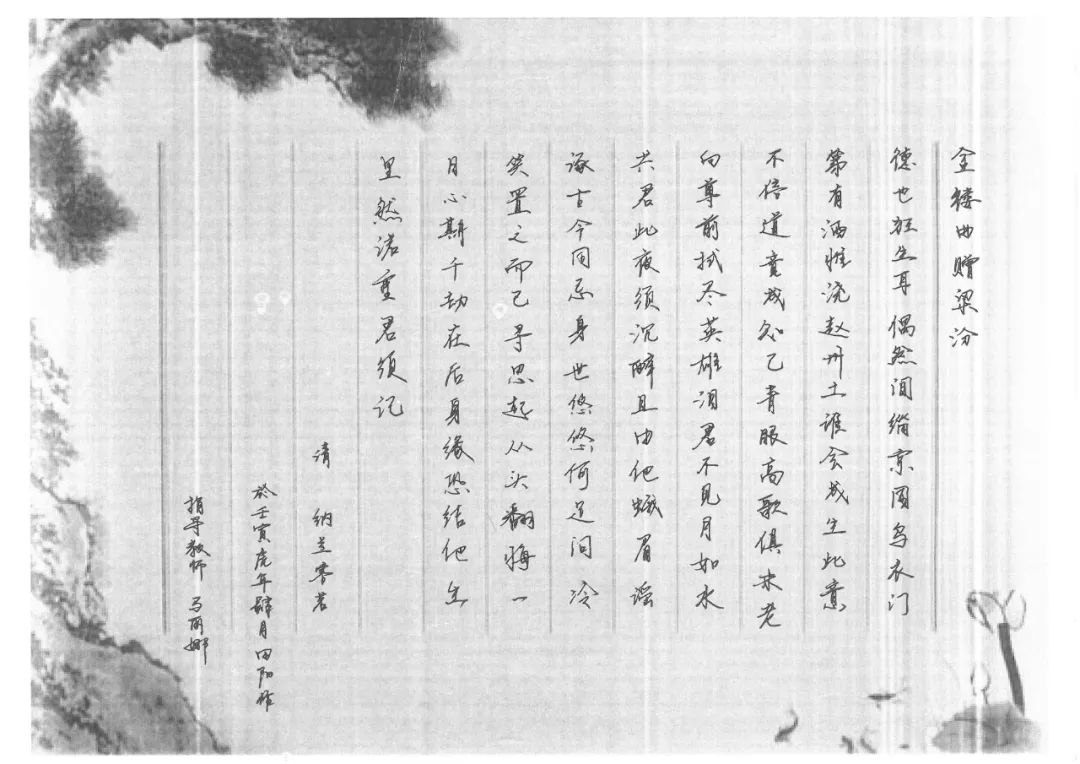 金缕曲赠梁汾
德也狂生耳偶然间缁京国乌衣门
第有酒惟浇赵州土谁会成生此意
不信道竟成知己青眼高歌俱未老
向尊前拭尽英雄泪君不见月如水
共君此夜须沉醉且由他蛾眉谣
诼古今同忌身世悠悠何足问冷
笑置之而已寻思起从头翻悔一
日心期千劫在后身缘恐结他生
里然诺重君须记
清 纳兰容若
於壬寅虎年肆月田阳作
指导教师 马丽娜